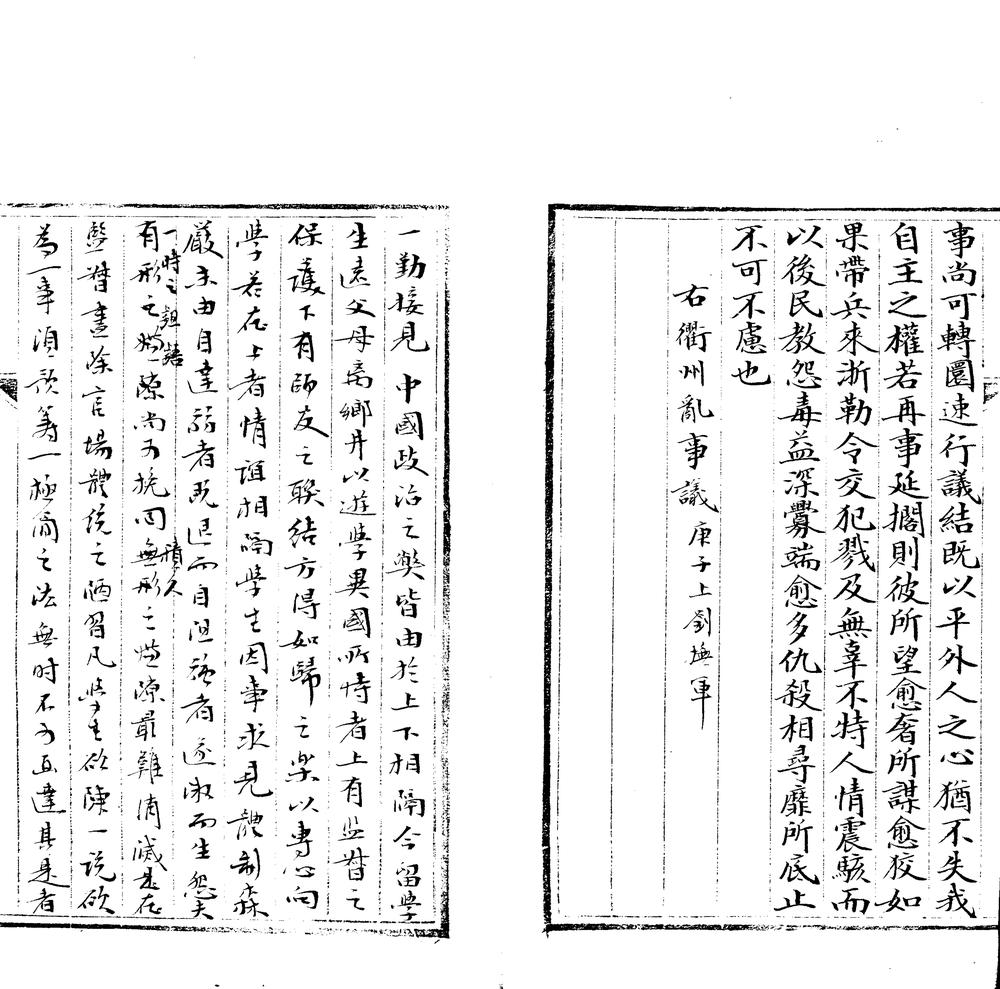 事尚可轉圜速行議結既以平外人之心猶不失我
自主之權若再事延擱則彼所望愈奢所謀愈狡如
果帶兵來浙勒令交犯戮及無辜不特人情震駭而
以後民教怨毒益深釁端愈多仇殺相尋靡所底止
不可不慮也
右衢州亂事議庚子上劉撫軍
一勤接見 中國政治之弊皆由於上下相隔今留學
生遠父母离鄉井以遊學異國所恃者上有監督之
保護下有師友之聯結方得如歸之樂以專心向
學若在上者情誼相隔學生因事求見體制森
嚴末由自達弱者既退而自沮强者遂激而生怨夫
一時之詛
有形之嫌隙尚可挽回無形之嫌隙最難消滅是在
積久
監督盡除官場體統之陋習凡學生欲陳一説欲
為一事須認籌一極簡之法無时不可直達其是者